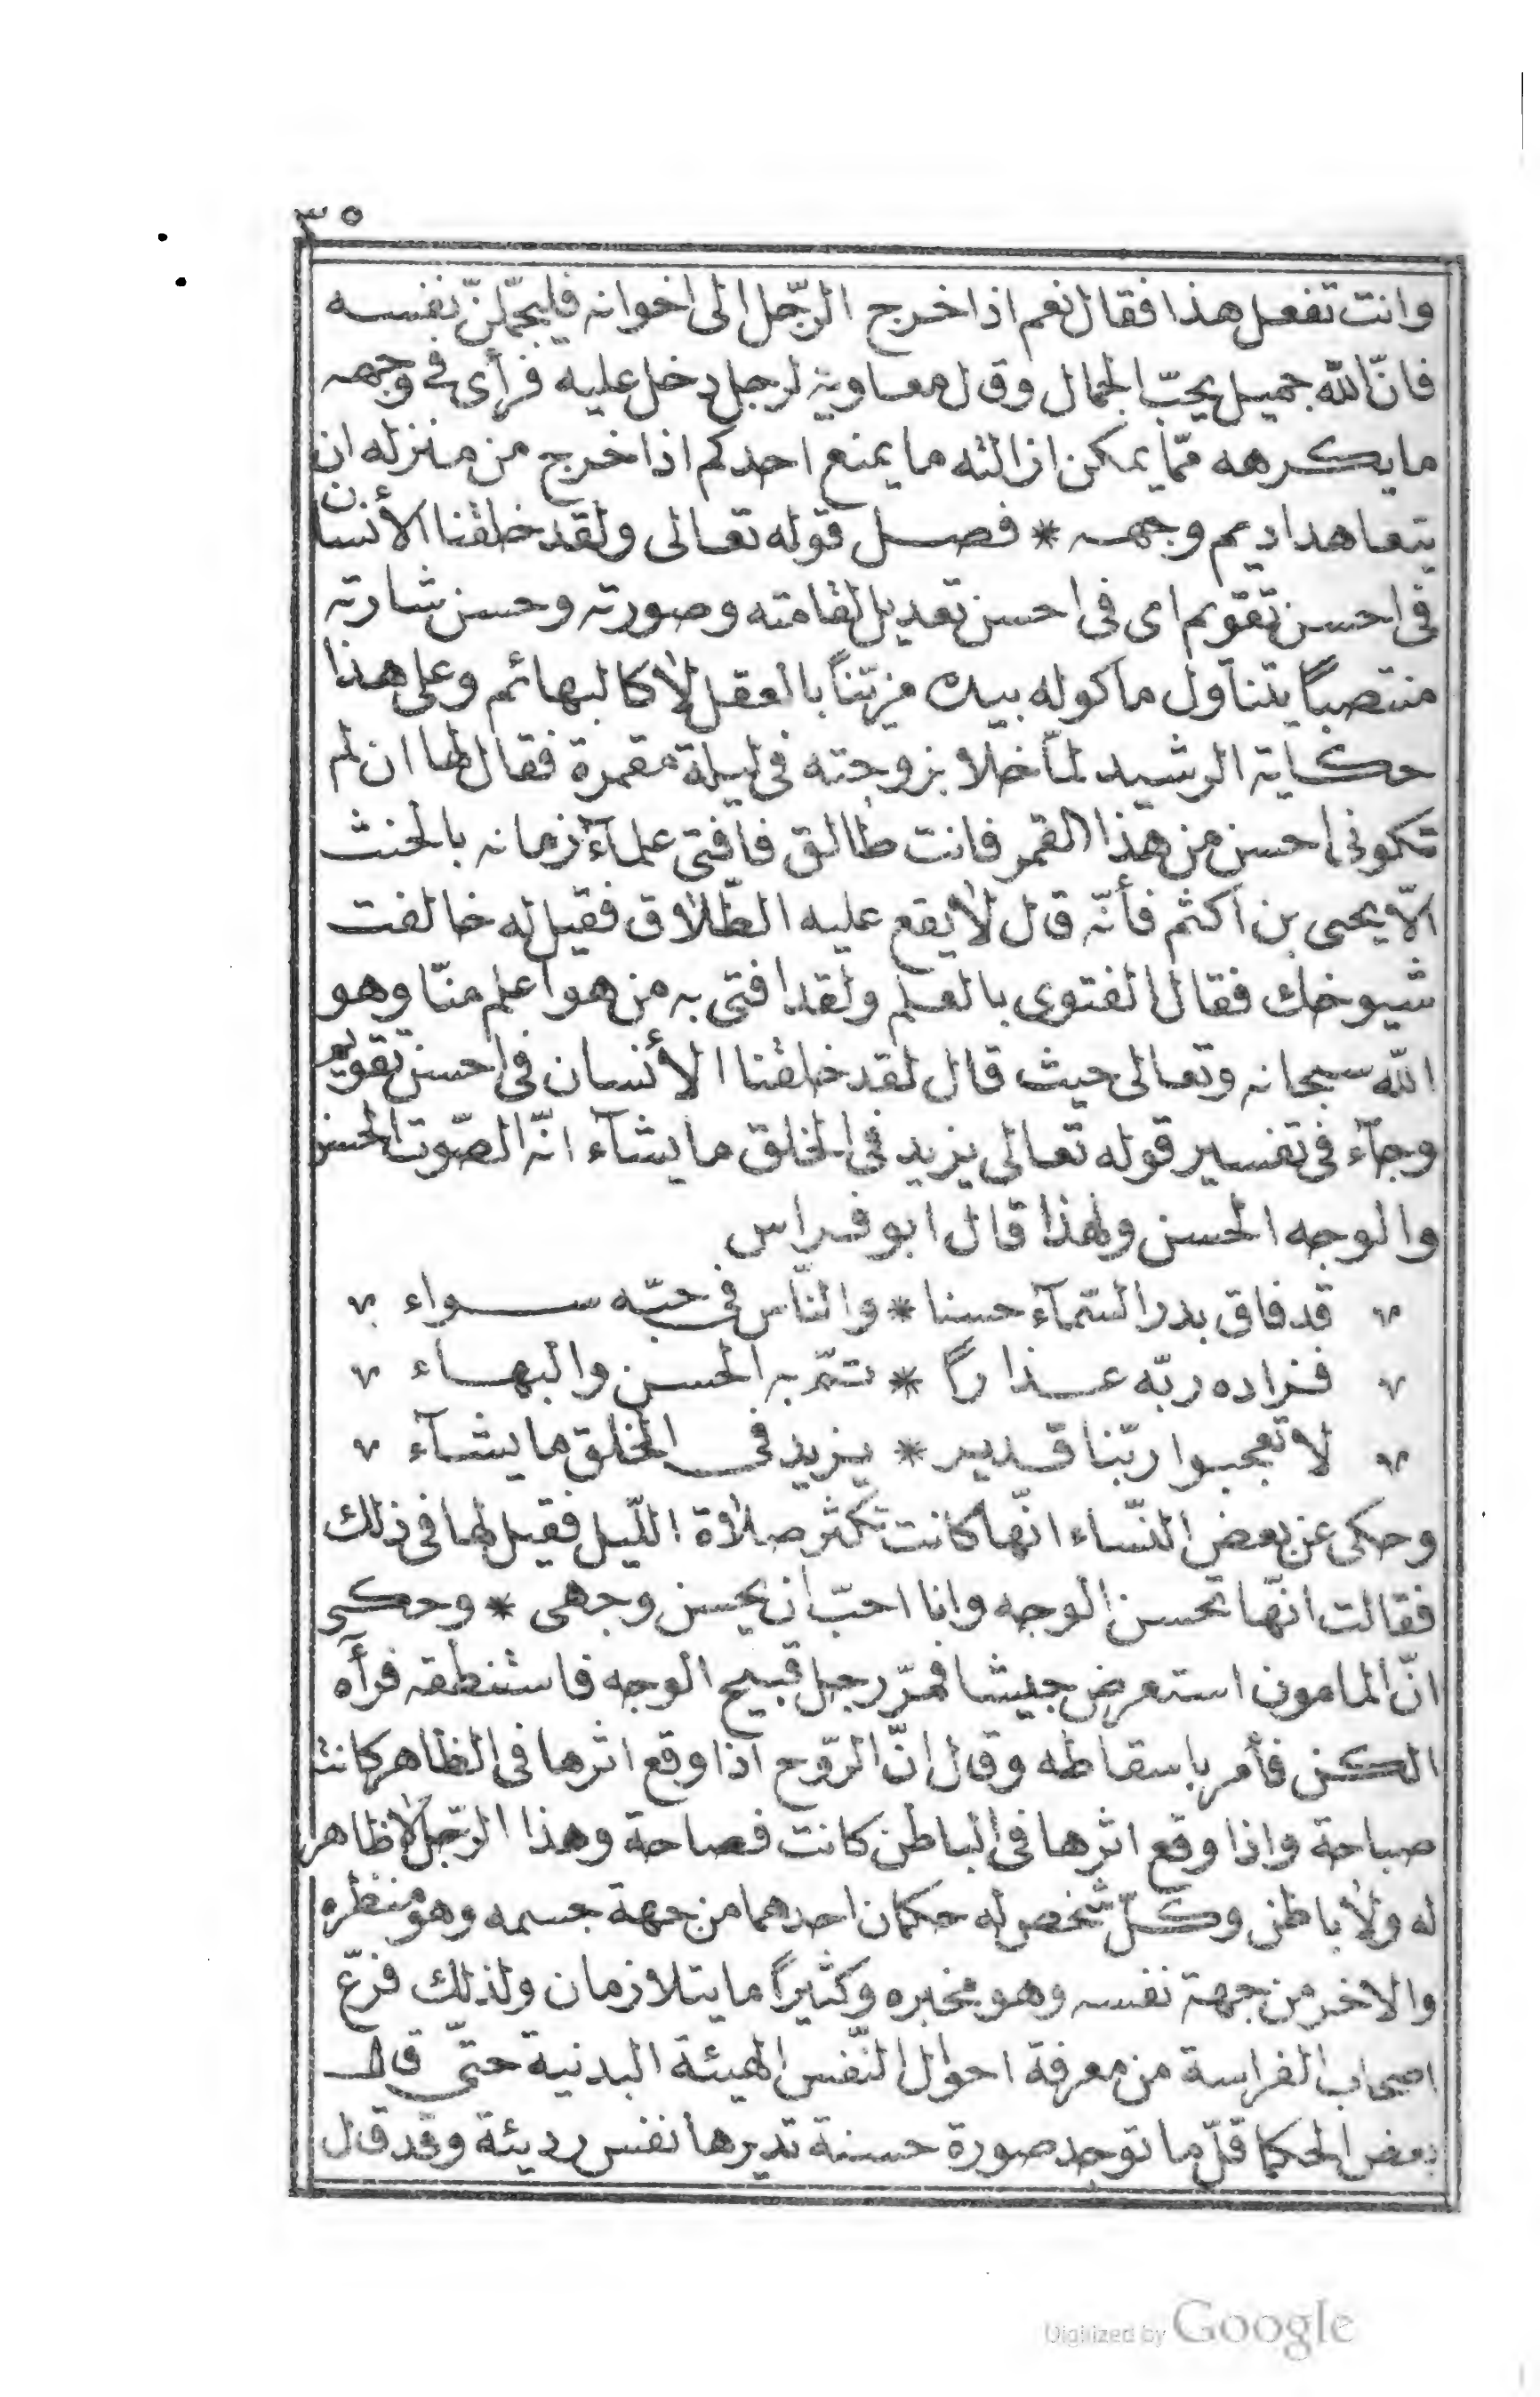 ٣٥
وانت تفعل هذا فقال نعم اذا خرج الرّجل الى اخوانه فليجمّلنّ نفسه
فانّ اللّه جميل يحبّ الجمال وقال معاوية لرجل دخل عليه فرأى في وجهه
ما يكرهه ممّا يمكن ازالته ما يمنع احدكم اذا خرج من منزله ان
يتعاهد اديم وجهه * فصل قوله تعالى ولقد خلقنا الأنسان
فى احسن تقويم اى فى احسن تعديل لقامته وصورته وحسن شارته
منتصباً يتنآول ماكوله بيده مزيّناً بالعقل لا كالبهائم وعلى هذا
حكاية الرشيد لمّا خلا بزوجته فى ليلة مقمرة فقال لها ان لم
تكونى احسن من هذا القمر فانت طالق فافتى علمآء زمانه بالحنث
الّا يحيى بن اكثم فأنّه قال لا يقع عليه الطّلاق فقيل له خالفت
شيوخك فقال الفتوى بالعلم ولقد افتى به من هو اعلم منّا وهو
اللّه سبحانه وتعالى حيث قال لقد خلقنا الأنسان فى احسن تقويم
وجآء فى تفسير قوله تعالى يزيد فى الخلق ما يشآء انّه الصّوت الحسن
والوجه الحسن ولهذا قال ابو فراس
قد فاق بدر السّمآء حسنا * والنّاس فى حبّه سواء
فزاده ربّه عذاراً * تتمّ به الحسن والبهاء
لا تعجبوا ربّنا قدير * يزيد فى الخلق ما يشآء
وحكى عن بعض النّساء انّها كانت تكثر صلاة اللّيل فقيل لها فى ذلك
فقالت انّها تحسن الوجه وانا احبّ ان يحسن وجهى * وحكى
انّ المامون استعرض جيشا فمرّ رجل قبيح الوجه فاستنطقه فرآه
الكن فأمر باسقاطه وقال انّ الرّوح اذا وقع اثرها فى الظاهر كانت
صباحة واذا وقع اثرها فى الباطن كانت فصاحة وهذا الرّجل لا ظاهر
له ولا باطن وكلّ شخص له حكمان احدهما من جهة جسمه وهو منظره
والاخر من جهة نفسه وهو مخبره وكثيراً ما يتلازمان ولذلك فزع
اصحاب الفراسة من معرفة احوال النّفس الهيئة البدنية حتىّ قال
بعض الحكما قلّ ما توجد صورة حسنة تديرها نفس رديئة وقد قال
Digitized by Google